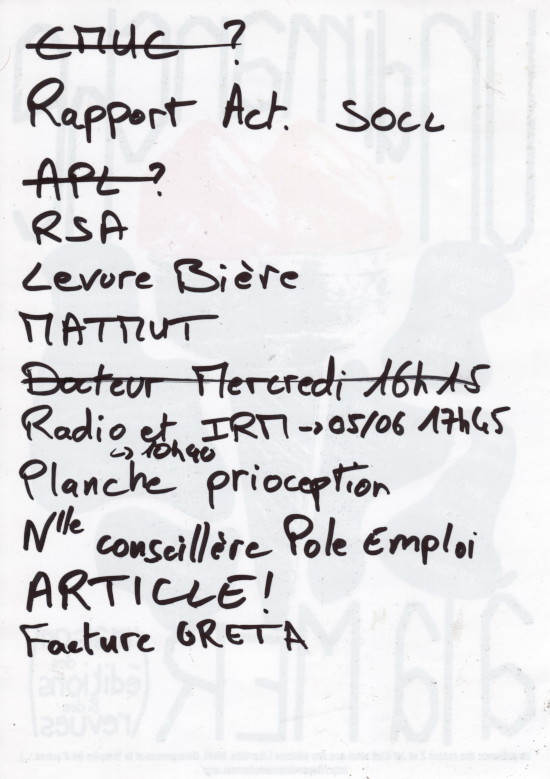 CMUC ?
Rapport Act. SOCL
APL ?
RSA
Levure Bière
MATMUT
Docteur Mercredi 16h15
Radio et IRM → 05/06 17h45
↪ 10h40
Planche prioception
Nlle conseillère Pole Emploi
ARTICLE !
Facture GRETA
un dimanche
à la MER
éditions
& des
revues